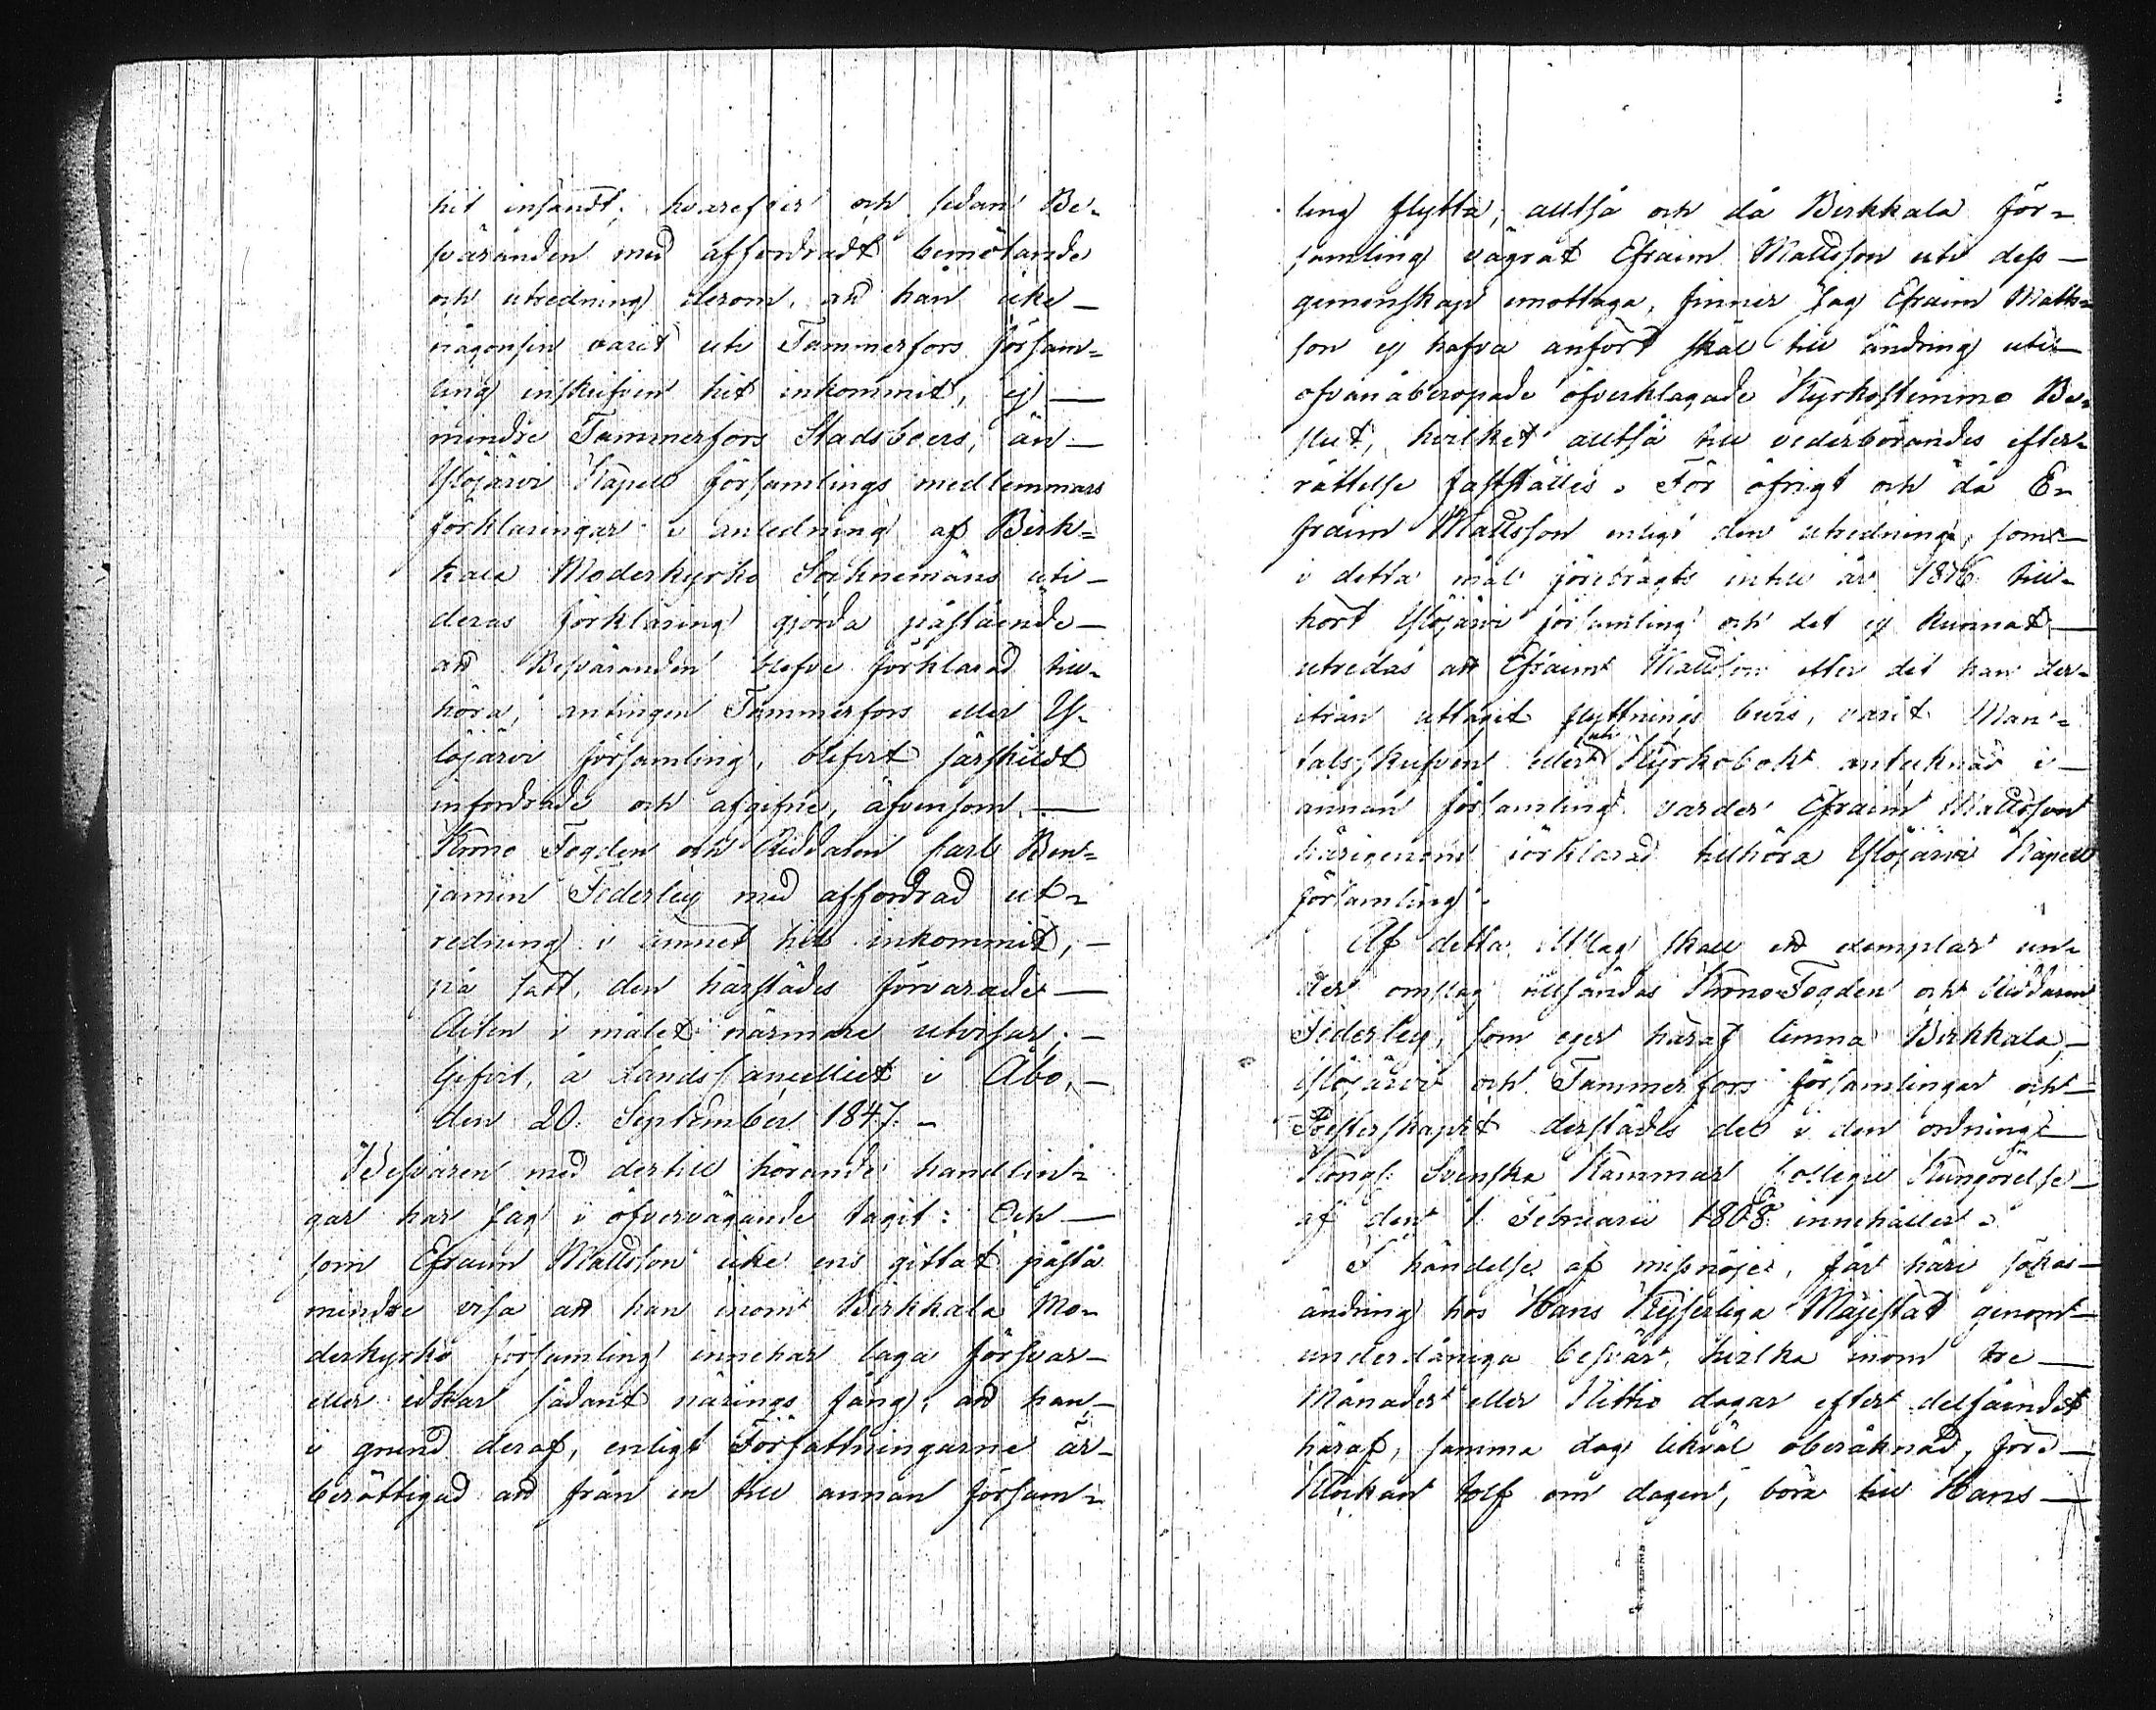 hit insändt; hvarefter och sedan Be-
sväranden med affordradt bemötande
och utredning derom, att han icke —
någonsin varit uti Tammerfors försam=
ling inskrifven hit inkommit, ej —
mindre Tammerfors Stadsboers, än —
Ylöjärvi Kapell församlings medlemmars
förklaringar i anledning af Birk=
kala Moderkyrko Sochnemäns uti —
deras förklaring gjorda påstående —
att Besväranden blefve förklarad till-
höra, antingen Tammerfors eller Y-
löjärvi församling, blifvit särskildt
infordrade och afgifne, äfvensom —
Krono Fogden och Riddaren Carl Ben=
jamin Federley med affordrad ut-
redning i ämnet hit inkommit, —
på sätt, den härstädes förvarade —
Acten i målet närmare utvisar; —
Gifvit, å Lands Cancelliet i Åbo, —
den 20. September 1847. —
Besvären med dertill hörande handlin-
gar har Jag i öfvervägande tagit: Och —
som Efraim Mattsson icke ens gittat påstå
mindre visa att han inom Birkkala Mo-
derkyrko församling innehar laga försvar —
eller idkar sådant närings fång; att han —
i grund deraf, enligt Författningarne är —
berättigad att från en till annan försam-
ling flytta; alltså och då Birkkala för=
samling vägrat Efraim Mattsson uti dess —
gemenskap emottaga, finner Jag Efraim Matts=
son ej hafva anfört skäl till ändring uti —
ofvanåberopade öfverklagade Kyrkostemmo Be-
slut, hvilket alltså till vederbörandes efter-
rättelse fastställes. För öfrigt och då E-
fraim Mattsson enligt den utredning, som —
i detta mål förebragts intill år 1846 till-
hört Ylöjärvi församling och det ej kunnat —
utredas att Efraim Mattsson efter det han der-
ifrån uttagit flyttnings bevis, varit Man-
talsskrifven eller uti Kyrkobok antecknad i —
annan församling varder Efraim Mattsson
härigenom förklarad tillhöra Ylöjärvi Kapell
församling. —
Af detta Utslag skall ett exemplar un-
der omslag tillsändas Krono Fogden och Riddaren
Federley, som eger häraf lemna Birkkala, —
Ylöjärvi och Tammerfors församlingar och —
Presterskapet derstädes del i den ordning —
Kongl: Svenska Kammar Collegii Kungörelse —
af den 1 Februarii 1808 innehåller. —
I händelse af missnöje, får häri sökas —
ändring hos Hans Kejserliga Majestät genom —
underdåniga besvär, hvilka inom tre —
Månader eller Nittio dagar efter delfåendet
häraf, samma dag likväl oberäknad, före —
Klockan tolf om dagen, böra till Hans —